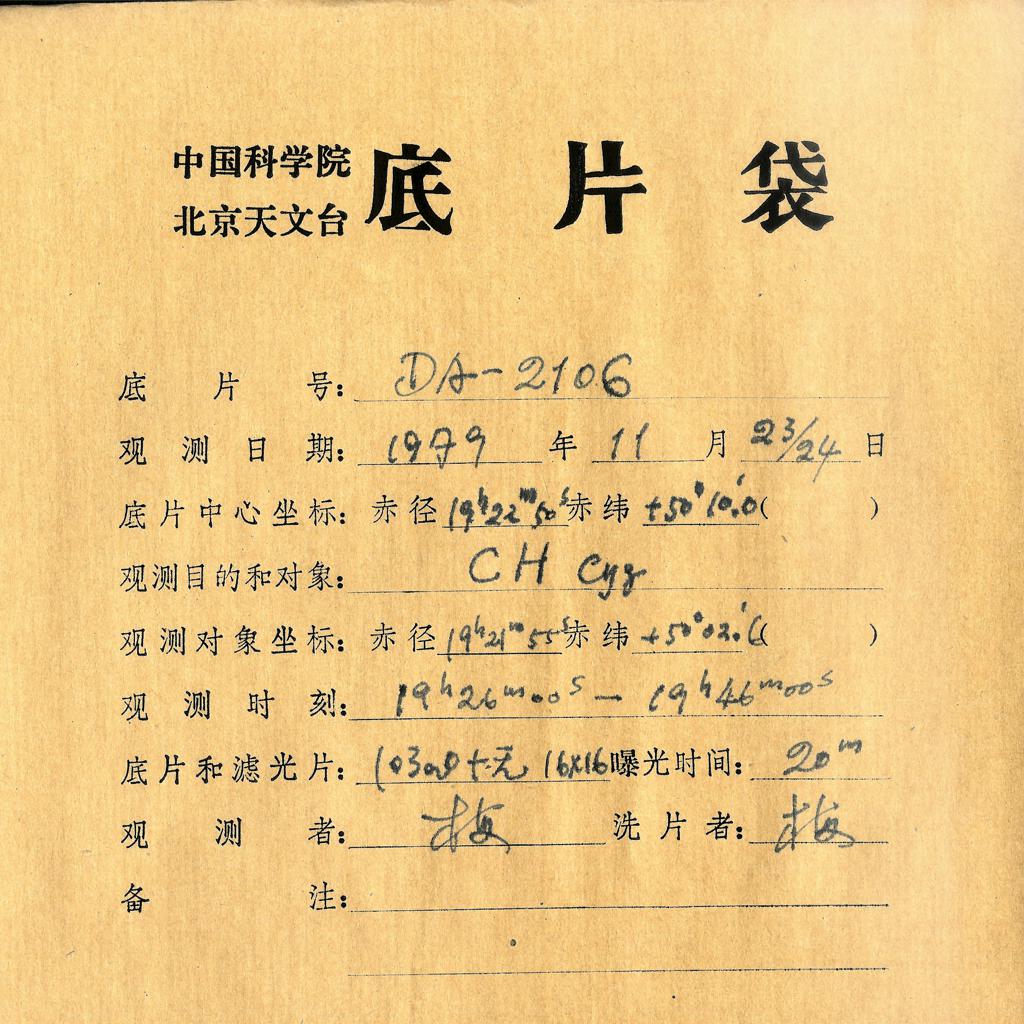 中国科学院
北京天文台
底片袋
底片号: DA-2106
观测日期: 1979年11月23/24日
底片中心坐标: 赤径19h22m50s赤纬+50°10'.0( )
观测目的和对象: CH Cyg
观测对象坐标: 赤径19h21m55s赤纬+50°02'.( )
观测时刻: 19h26m00s — 19h46m00s
底片和滤光片: 103aO+无 16x16曝光时间: 20m
观测者: 梅 洗片者: 梅
备注: